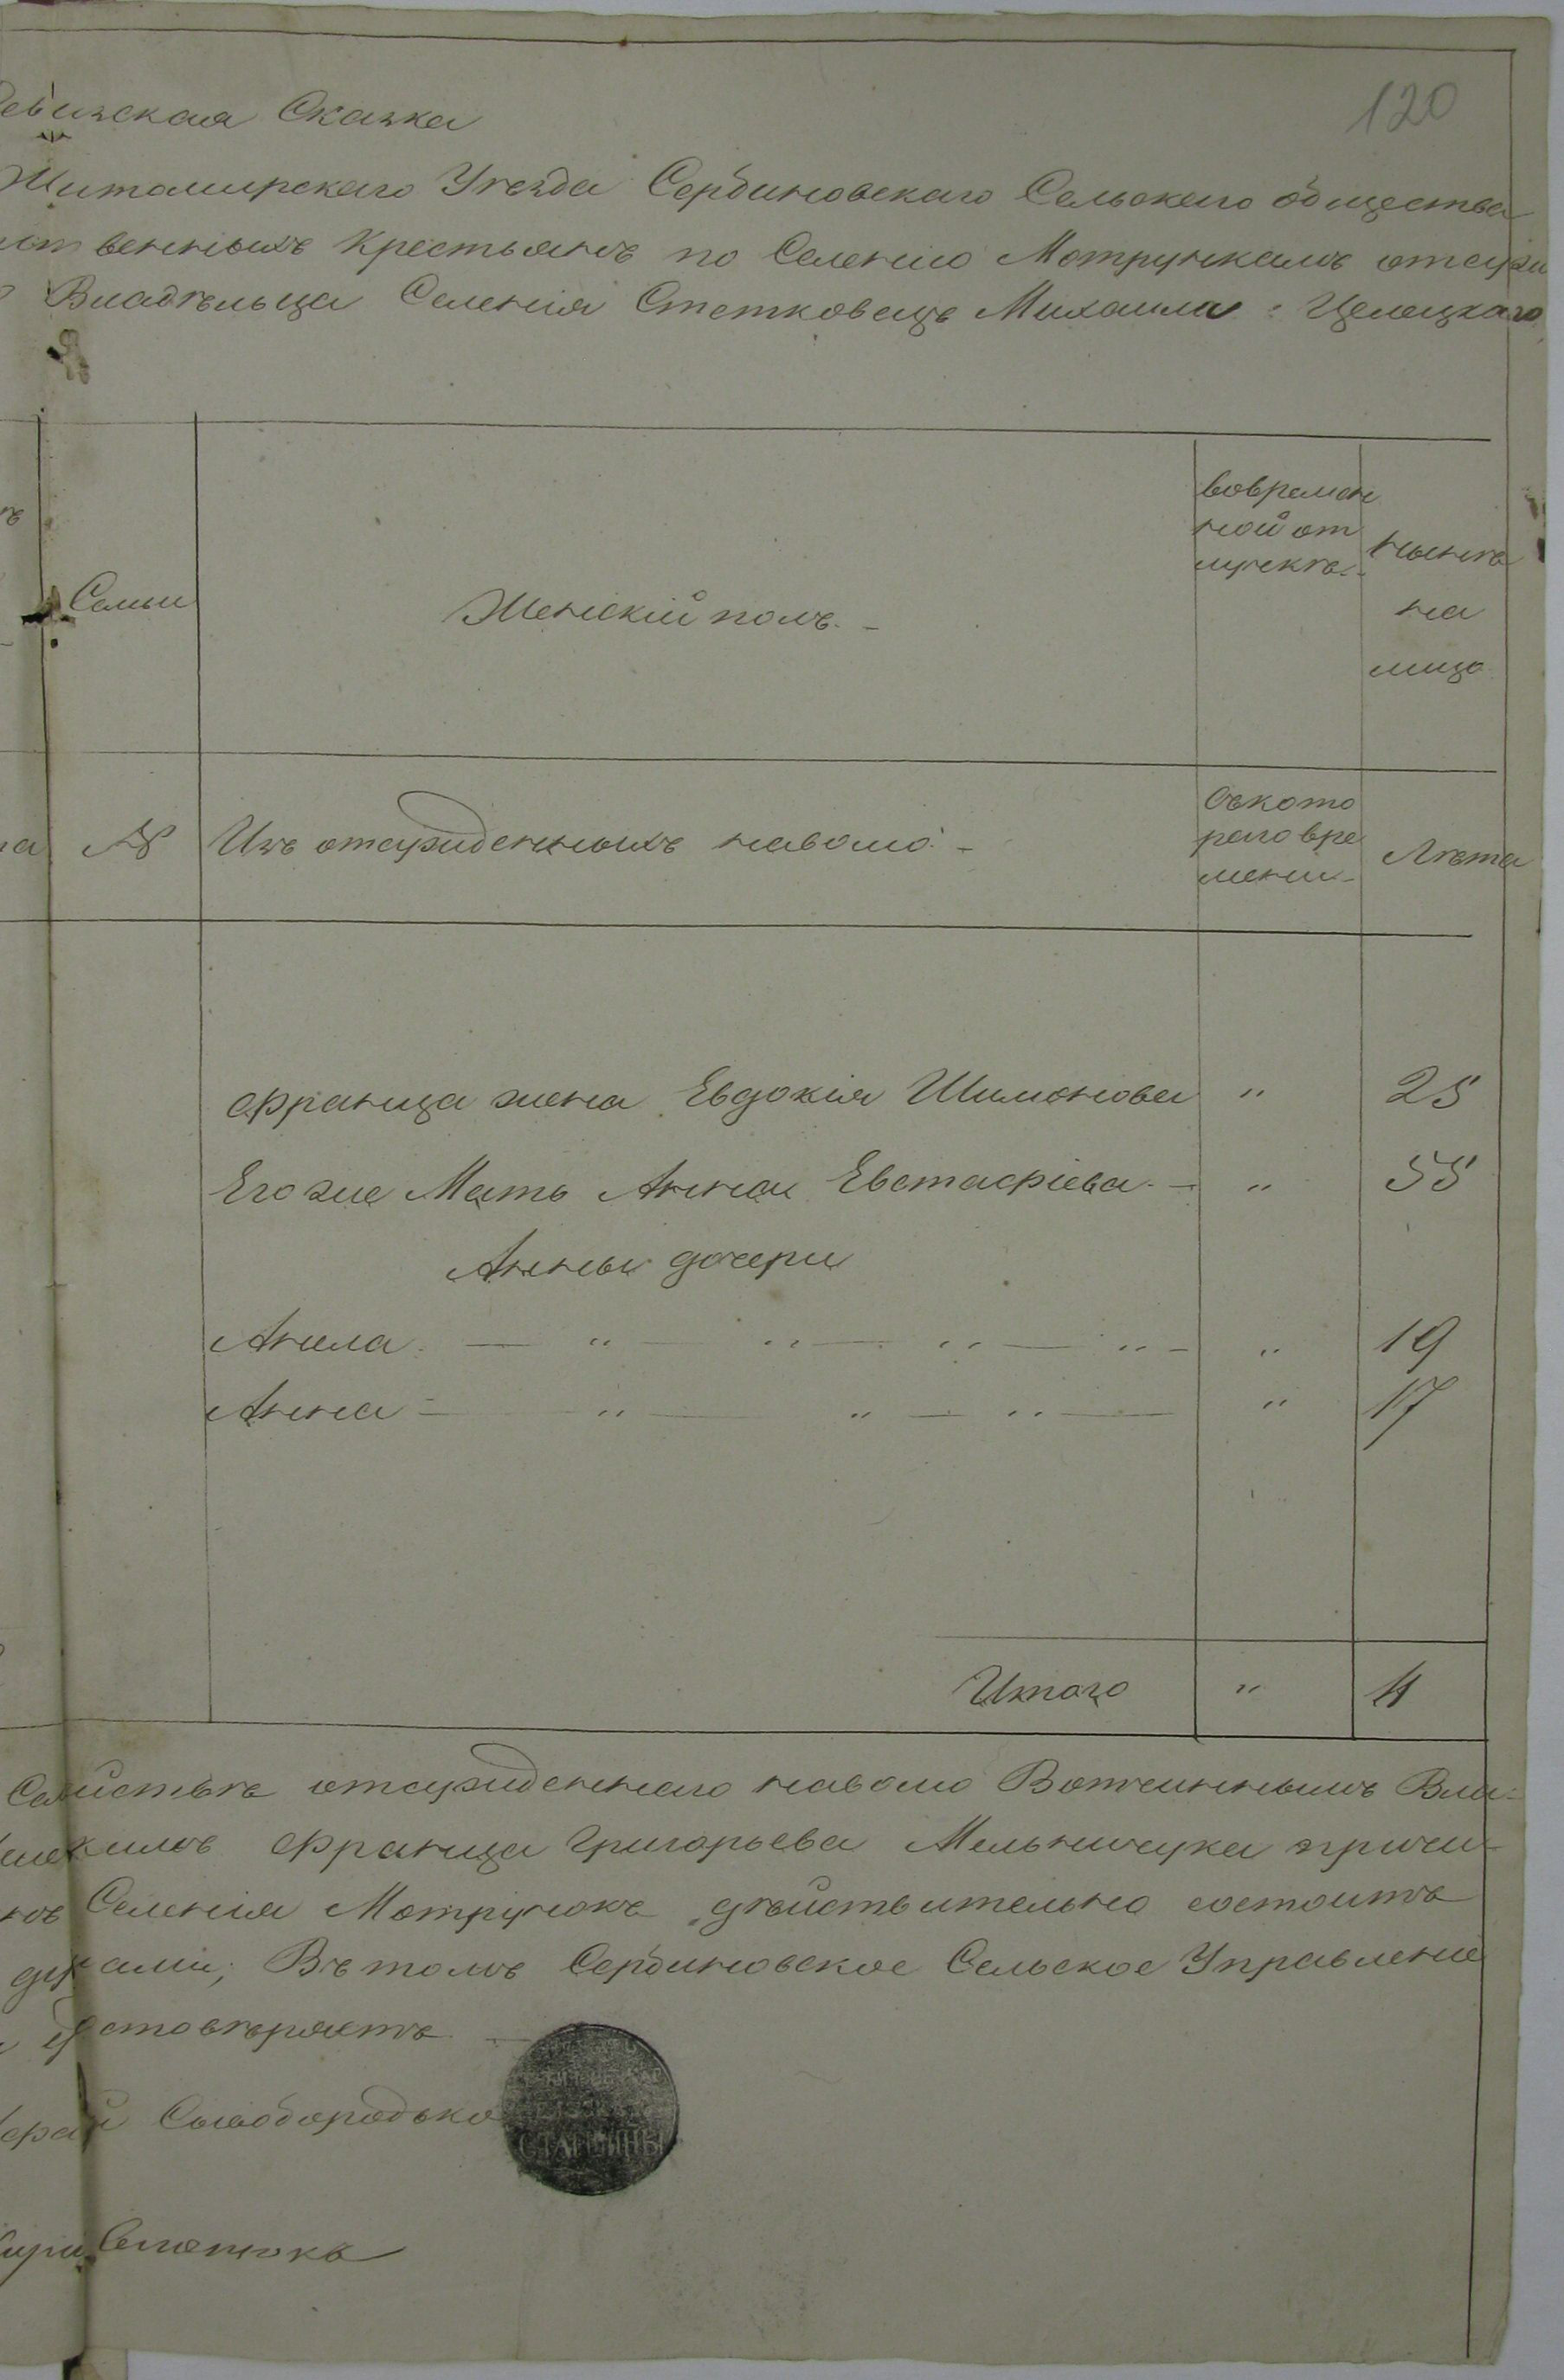 120
Ревизская Сказка
Житомирскаго Уезда Сербиновскаго Сельскаго общества
ственныхъ Крестьянъ по Селению Мотрункамъ отсужд
Владѣльца Селенія Стетковецъ Михаила Целецкаго
Семьи
Женскій полъ. –
вовремен
ной от
лучкѣ. –
нынѣ
на
лицо
№
Изъ отсужденныхъ наволю. –
Съкото
раго вре
мени –
Лѣта
Франца жена Евдокія Шимонова " 25
Его же Мать Анна Евстафіева. – " 55
Анны дочери
Анела. — " — " — " — " – " 19
Анна – — " — " — " — " 17
Итого " 4
Семействѣ отсужденнаго наволю Вотчиннымъ Вла-
Франца Григорьева Мельничука причи-
Селенія Мотрунокъ дѣйствительно состоитъ
душами; Въ томъ Сербиновское Сельское Управленіе
удостовѣряетъ –
СТАРШИНЫ